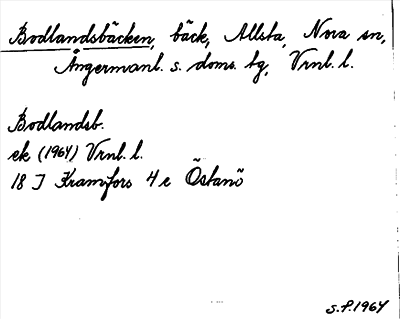 Bodlandsbäcken, bäck, Allsta, Nora sn,
Ångermanl. s. doms. tg, Vrnl. l.
Bodlandsb.
ek (1964) Vrnl. l.
18 J Kramfors 4 e Östanö
S.P. 1964